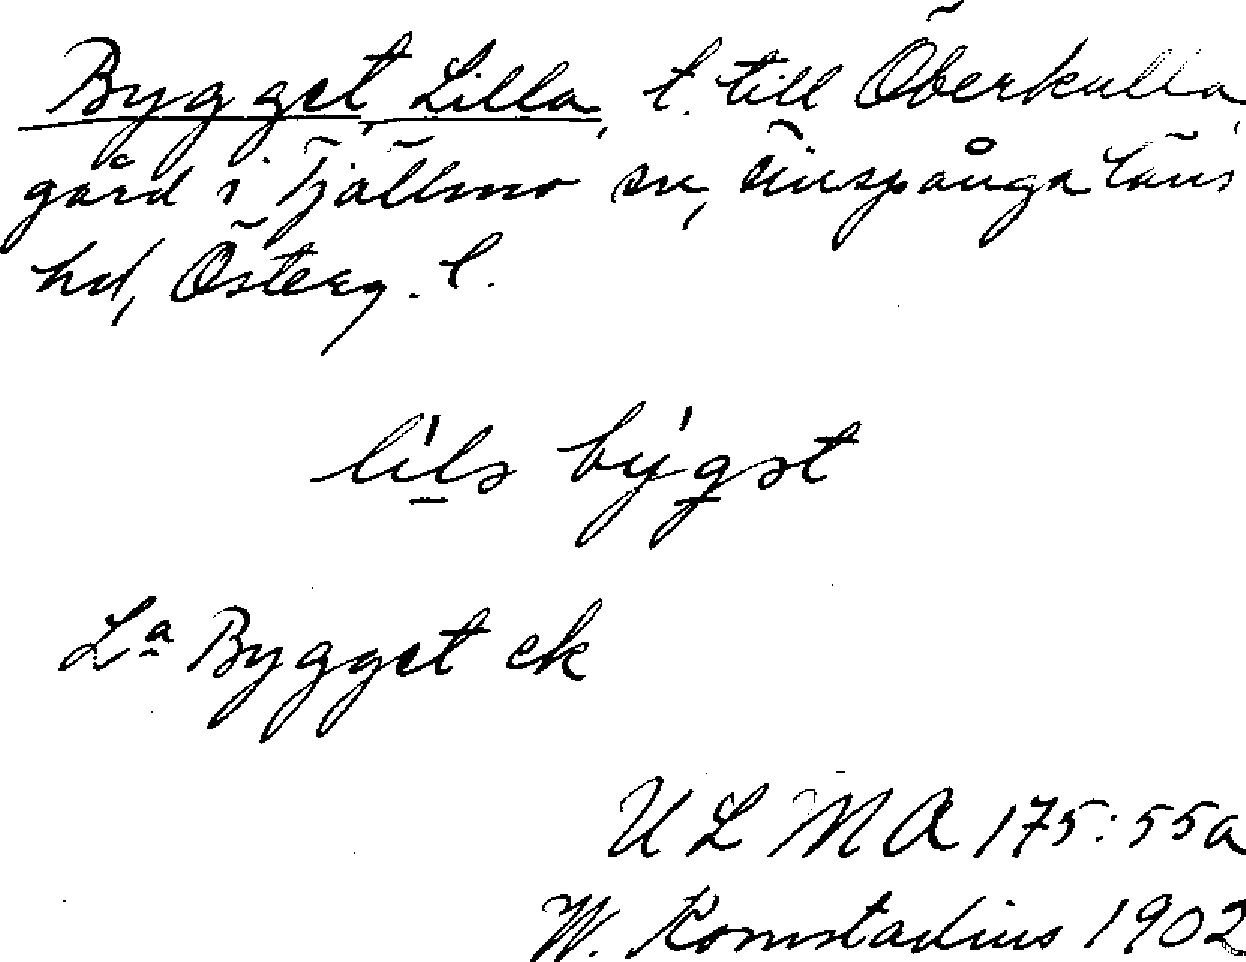 Bygget, Lilla, t. till Överkulla
gård i Tjällmo sn, Finspånga läns
hd, Österg. l.
líla býgət
La Bygget ek
ULMA 175:55a
W. Komstadius 1902